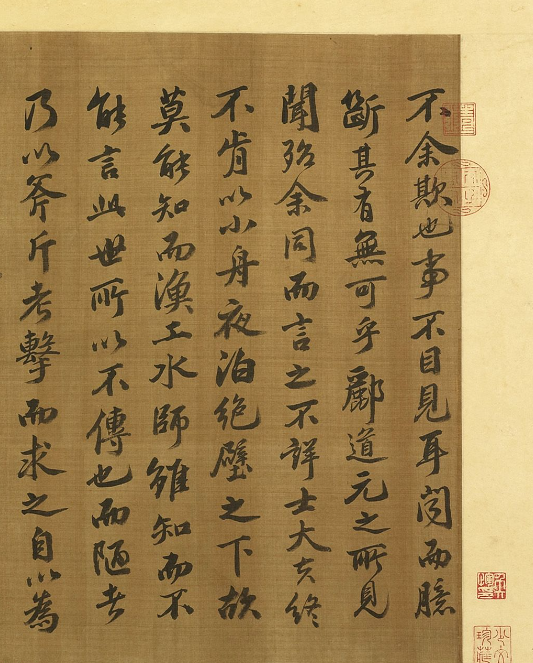 不余欺也事不目見耳聞而臆
斷其有無可乎酈道元之所見
聞殆余同而言之不詳士大夫終
不肯以小舟夜泊絕壁之下故
莫能知而漁工水師雖知而不
能言此世所以不傳也而陋者
乃以斧斤考擊而求之自以為